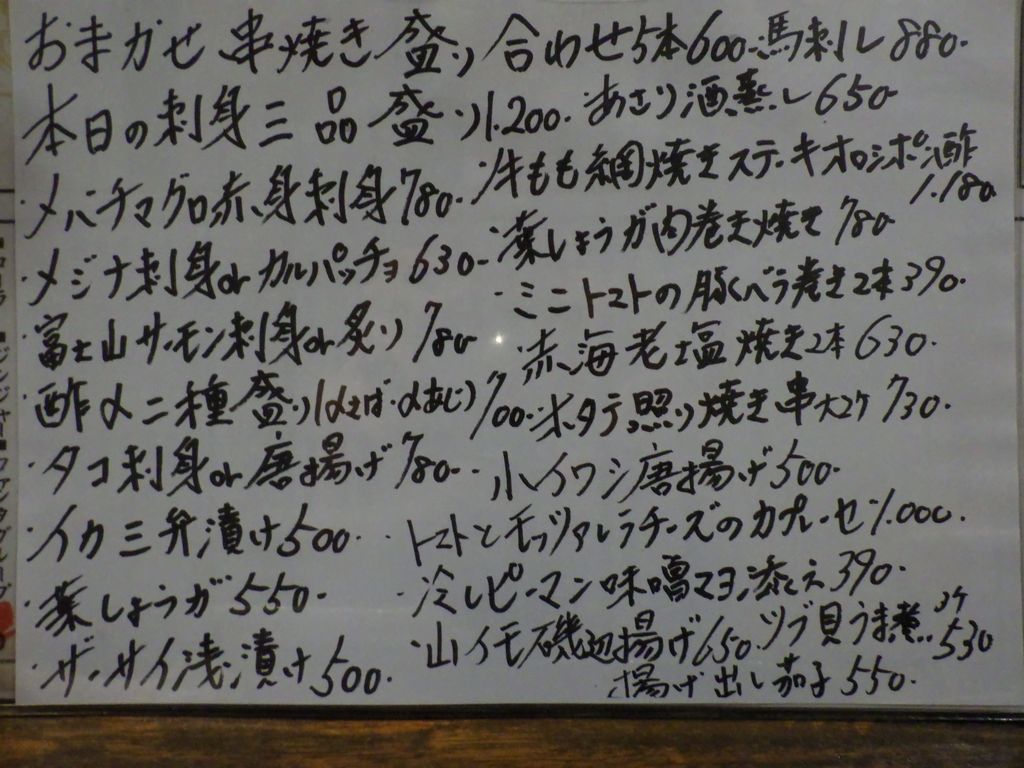 おまかせ串焼き盛り合わせ5本600-
本日の刺身三品盛り1.200-
・メバチマグロ赤身刺身780-
・メジナ刺身orカルパッチョ630-
・富士山サーモン刺身or炙り780-
・酢〆二種盛り(〆さば・〆あじ)700-
・タコ刺身or唐揚げ780-
・イカ三升漬け500-
・葉しょうが550-
・ザーサイ浅漬け500-
馬刺し880-
・あさり酒蒸し650-
・牛もも網焼きステーキオロシポン酢1.180-
・葉しょうが肉巻き焼き780-
・ミニトマトの豚バラ巻き2本390-
・赤海老塩焼き2本630-
・ホタテ照り焼き串大2ケ730-
・小イワシ唐揚げ500-
・トマトとモッツァレラチーズのカプレーゼ1.000-
・冷しピーマン味噌マヨ添え390-
・山イモ磯辺揚げ650-
ツブ貝うま煮3ケ530
揚げ出し茄子550-